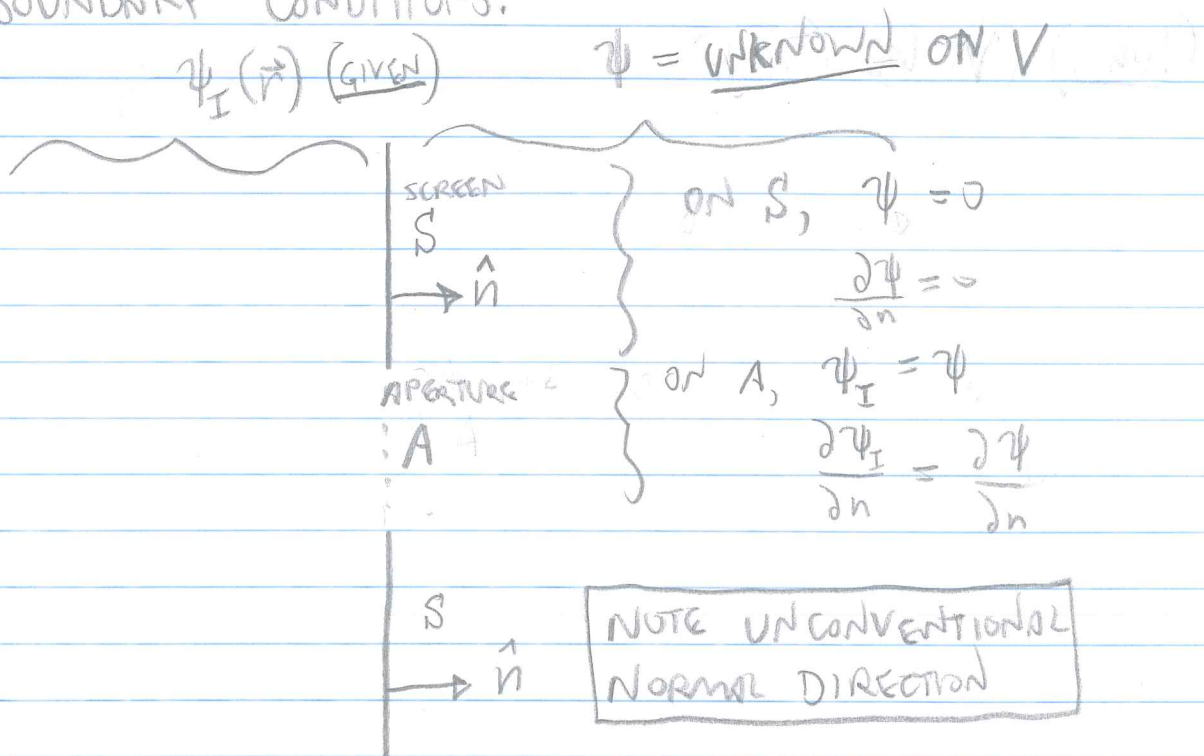 BOUNDARY CONDITIONS:
ψ_I(r⃗) (GIVEN)
ψ = UNKNOWN ON V
SCREEN
S
n̂
ON S, ψ = 0
∂ψ/∂n = 0
APERTURE
A
ON A, ψ_I = ψ
∂ψ_I/∂n = ∂ψ/∂n
S
n̂
NOTE UNCONVENTIONAL
NORMAL DIRECTION